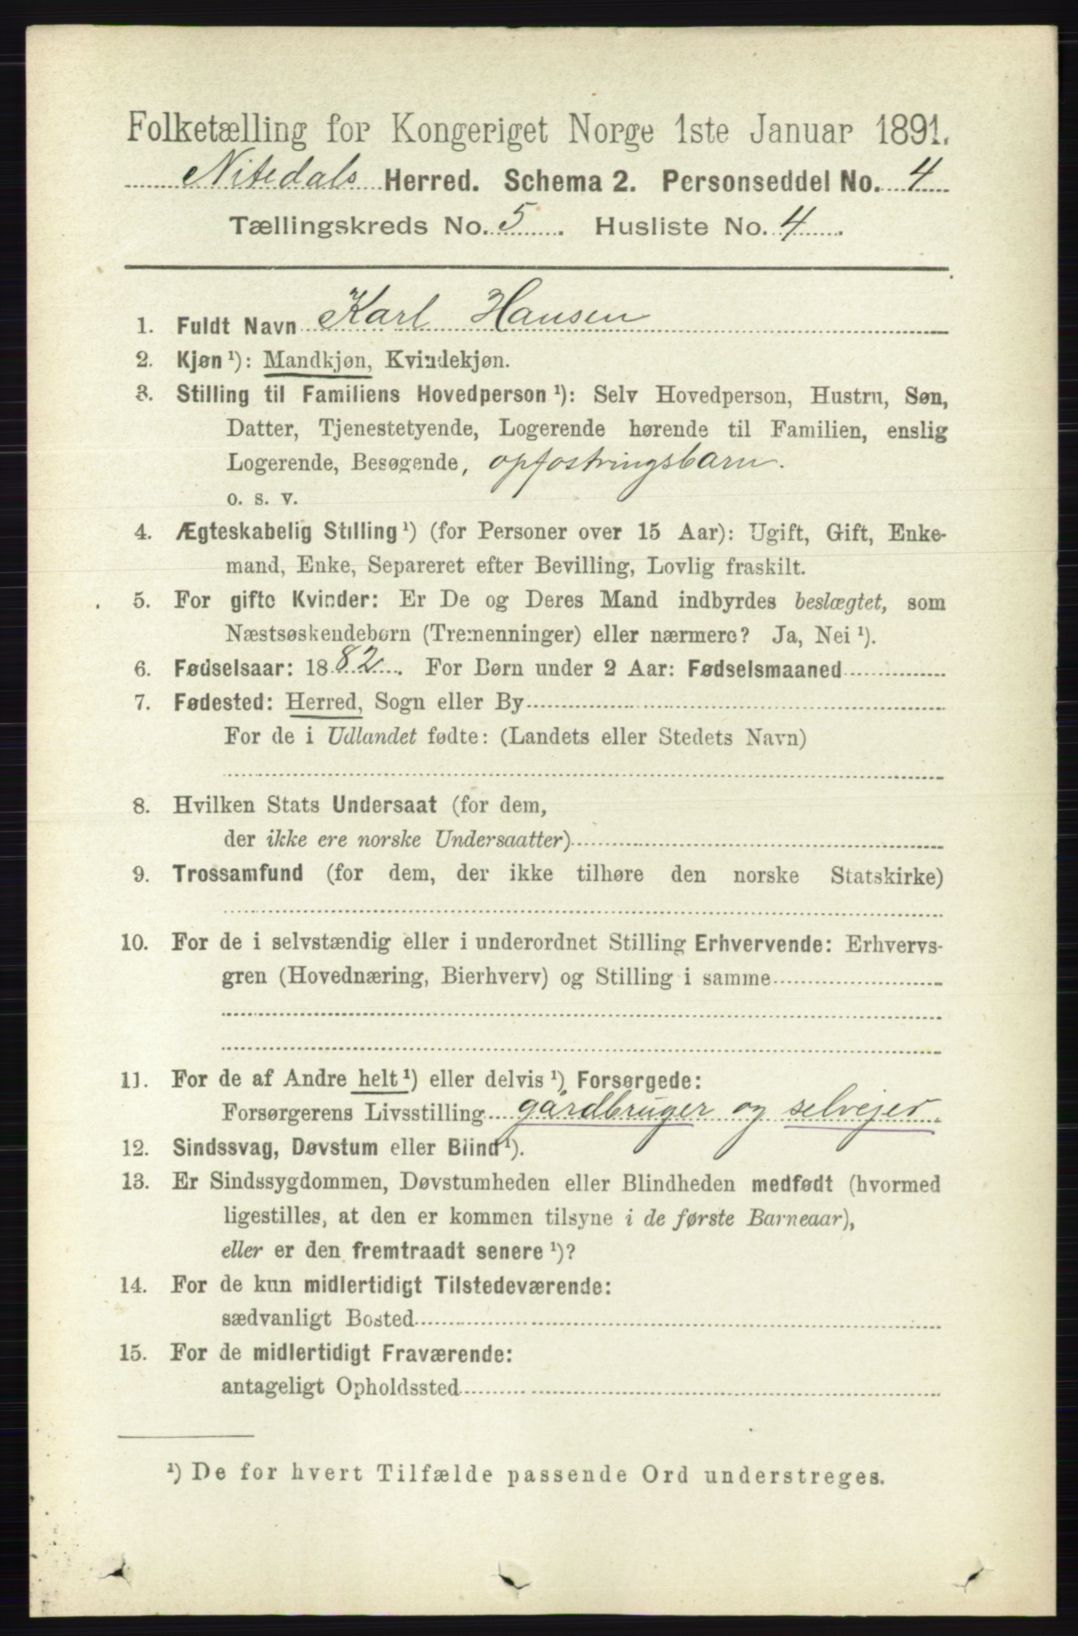 Folketælling for Kongeriget Norge 1ste Januar 1891.
Nitedals Herred. Schema 2. Personseddel No. 4
Tællingskreds No. 5. Husliste No. 4.
1. Fuldt Navn Karl Hansen
2. Kjøn ¹): Mandkjøn, Kvindekjøn.
3. Stilling til Familiens Hovedperson ¹): Selv Hovedperson, Hustru, Søn,
Datter, Tjenestetyende, Logerende hørende til Familien, enslig
Logerende, Besøgende, opfostringsbarn.
o. s. v.
4. Ægteskabelig Stilling ¹) (for Personer over 15 Aar): Ugift, Gift, Enke-
mand, Enke, Separeret efter Bevilling, Lovlig fraskilt.
5. For gifte Kvinder: Er De og Deres Mand indbyrdes beslægtet, som
Næstsøskendebørn (Tremenninger) eller nærmere? Ja, Nei ¹).
6. Fødselsaar: 1882. For Børn under 2 Aar: Fødselsmaaned
7. Fødested: Herred, Sogn eller By
For de i Udlandet fødte: (Landets eller Stedets Navn)
8. Hvilken Stats Undersaat (for dem,
der ikke ere norske Undersaatter)
9. Trossamfund (for dem, der ikke tilhøre den norske Statskirke)
10. For de i selvstændig eller i underordnet Stilling Erhvervende: Erhvervs-
gren (Hovednæring, Bierhverv) og Stilling i samme
11. For de af Andre helt ¹) eller delvis ¹) Forsørgede:
Forsørgerens Livsstilling gårdbruger og selvejer.
12. Sindssvag, Døvstum eller Blind ¹).
13. Er Sindssygdommen, Døvstumheden eller Blindheden medfødt (hvormed
ligestilles, at den er kommen tilsyne i de første Barneaar),
eller er den fremtraadt senere ¹)?
14. For de kun midlertidigt Tilstedeværende:
sædvanligt Bosted
15. For de midlertidigt Fraværende:
antageligt Opholdssted
¹) De for hvert Tilfælde passende Ord understreges.